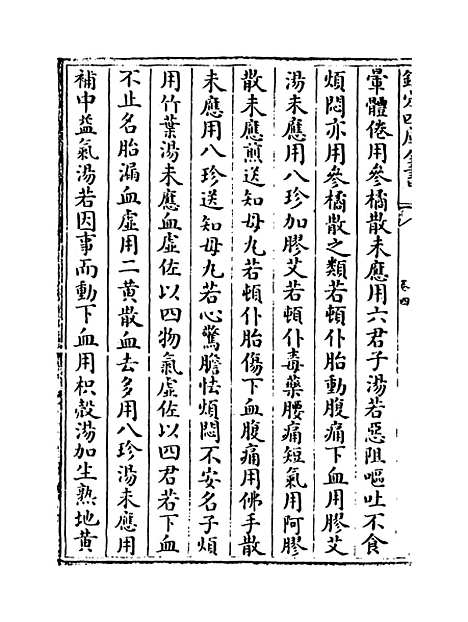 欽定四庫全書
卷四
暈體倦用參橘散未應用六君子湯若惡阻嘔吐不食
煩悶亦用參橘散之類若頓仆胎動腹痛下血用膠艾
湯未應用八珍加膠艾若頓仆毒藥腰痛短氣用阿膠
散未應煎送知母丸若頓仆胎傷下血腹痛用佛手散
未應用八珍送知母丸若心驚膽怯煩悶不安名子煩
用竹葉湯未應血虛佐以四物氣虛佐以四君若下血
不止名胎漏血虛用二黃散血去多用八珍湯未應用
補中益氣湯若因事而動下血用枳殼湯加生熟地黃